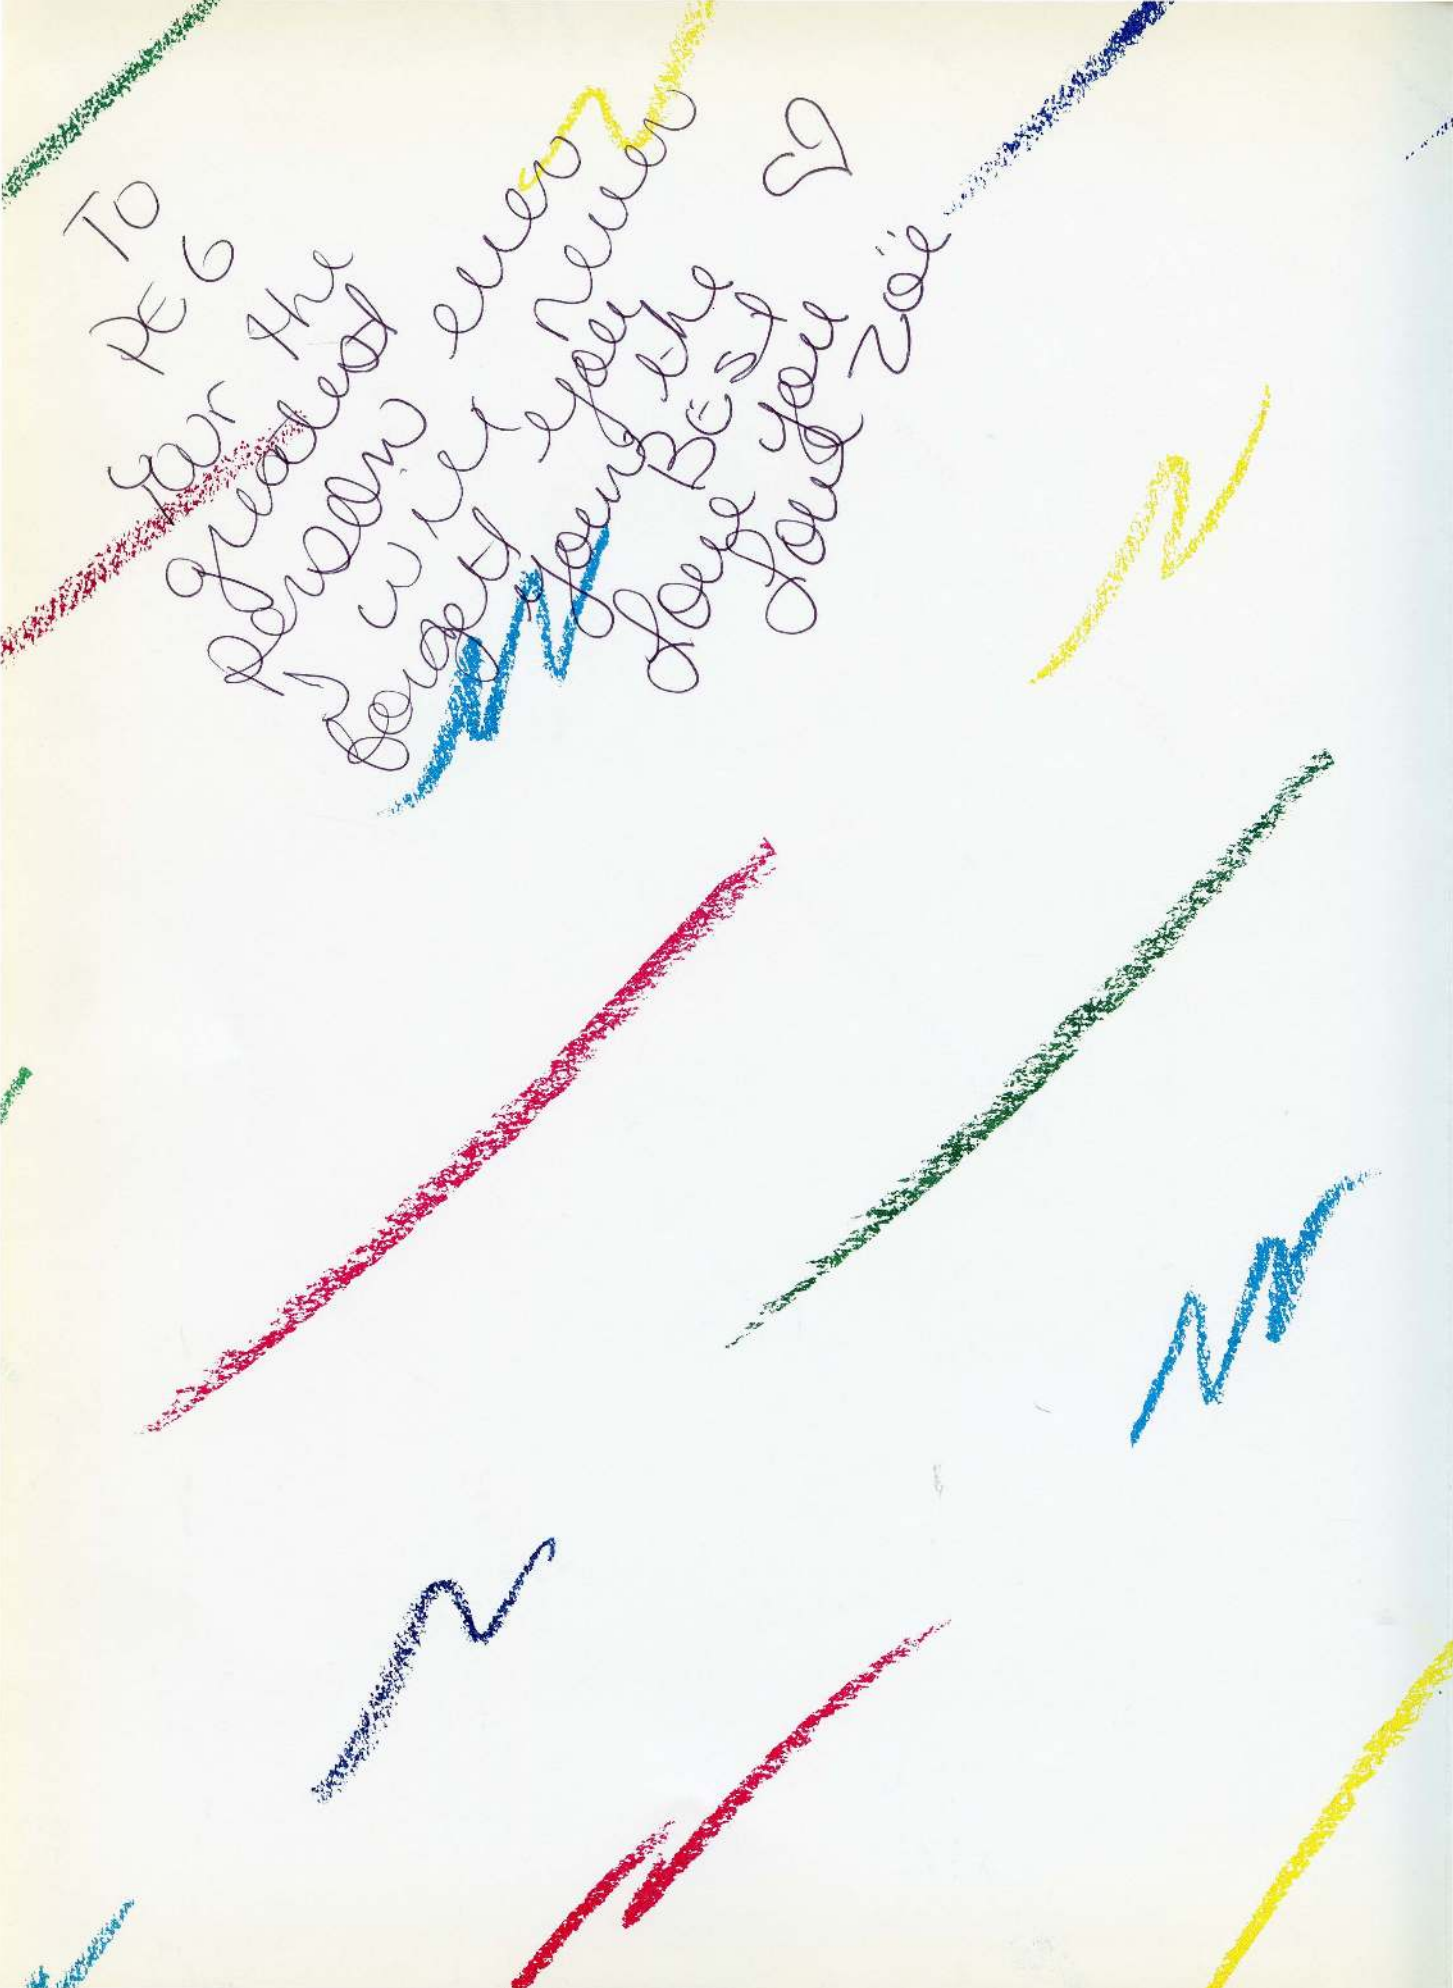 To
PEG
your the
greatest
person ever
I will never
forget you
your the
Best
Love you
Love Zoë